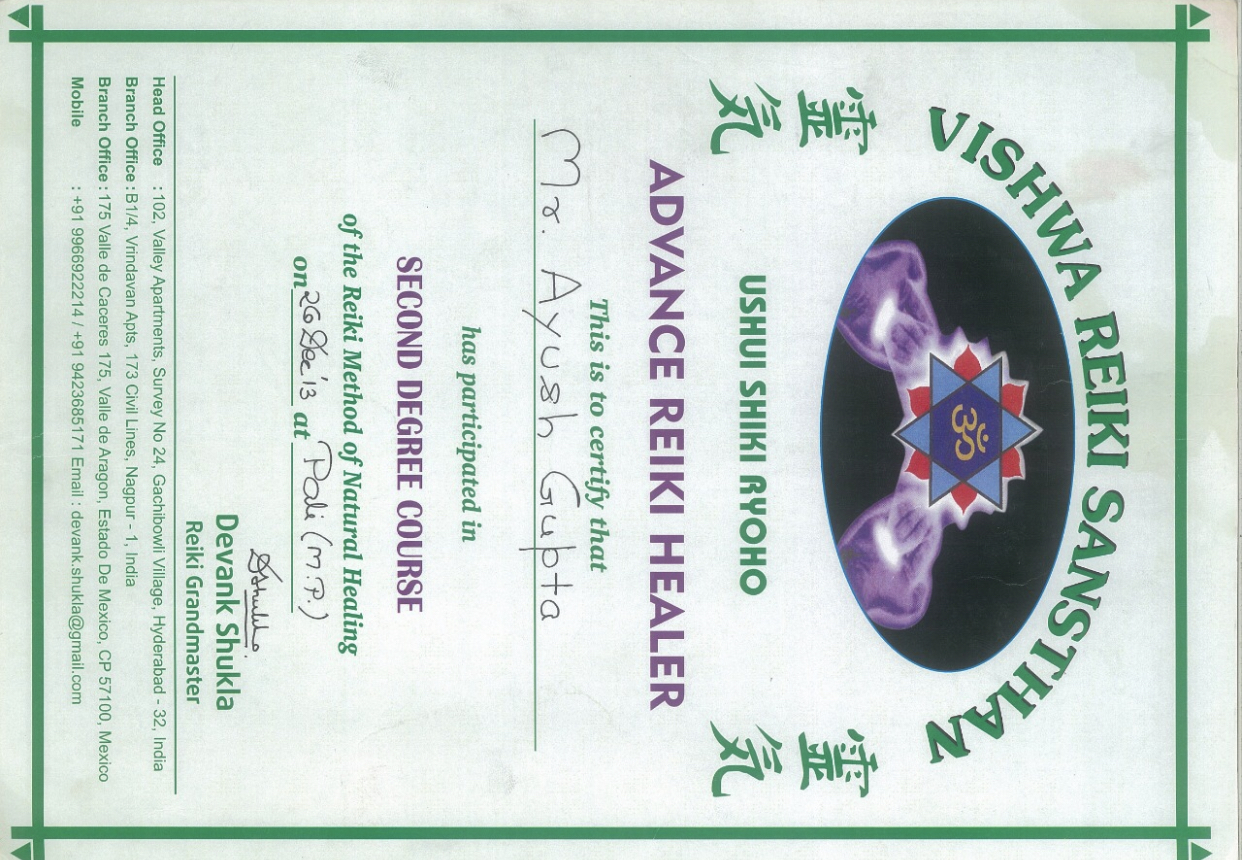 VISHWA REIKI SANSTHAN
ॐ
霊気
霊気
USHUI SHIKI RYOHO
ADVANCE REIKI HEALER
This is to certify that
Mr. Ayush Gupta
has participated in
SECOND DEGREE COURSE
of the Reiki Method of Natural Healing
on 26 Dec'13 at Pali (M.P.)
DShukla
Devank Shukla
Reiki Grandmaster
Head Office : 102, Valley Apartments, Survey No 24, Gachibowli Village, Hyderabad - 32, India
Branch Office : B1/4, Vrindavan Apts, 173 Civil Lines, Nagpur - 1, India
Branch Office : 175 Valle de Caceres 175, Valle de Aragon, Estado De Mexico, CP 57100, Mexico
Mobile : +91 9966922214 / +91 9423685171 Email : devank.shukla@gmail.com